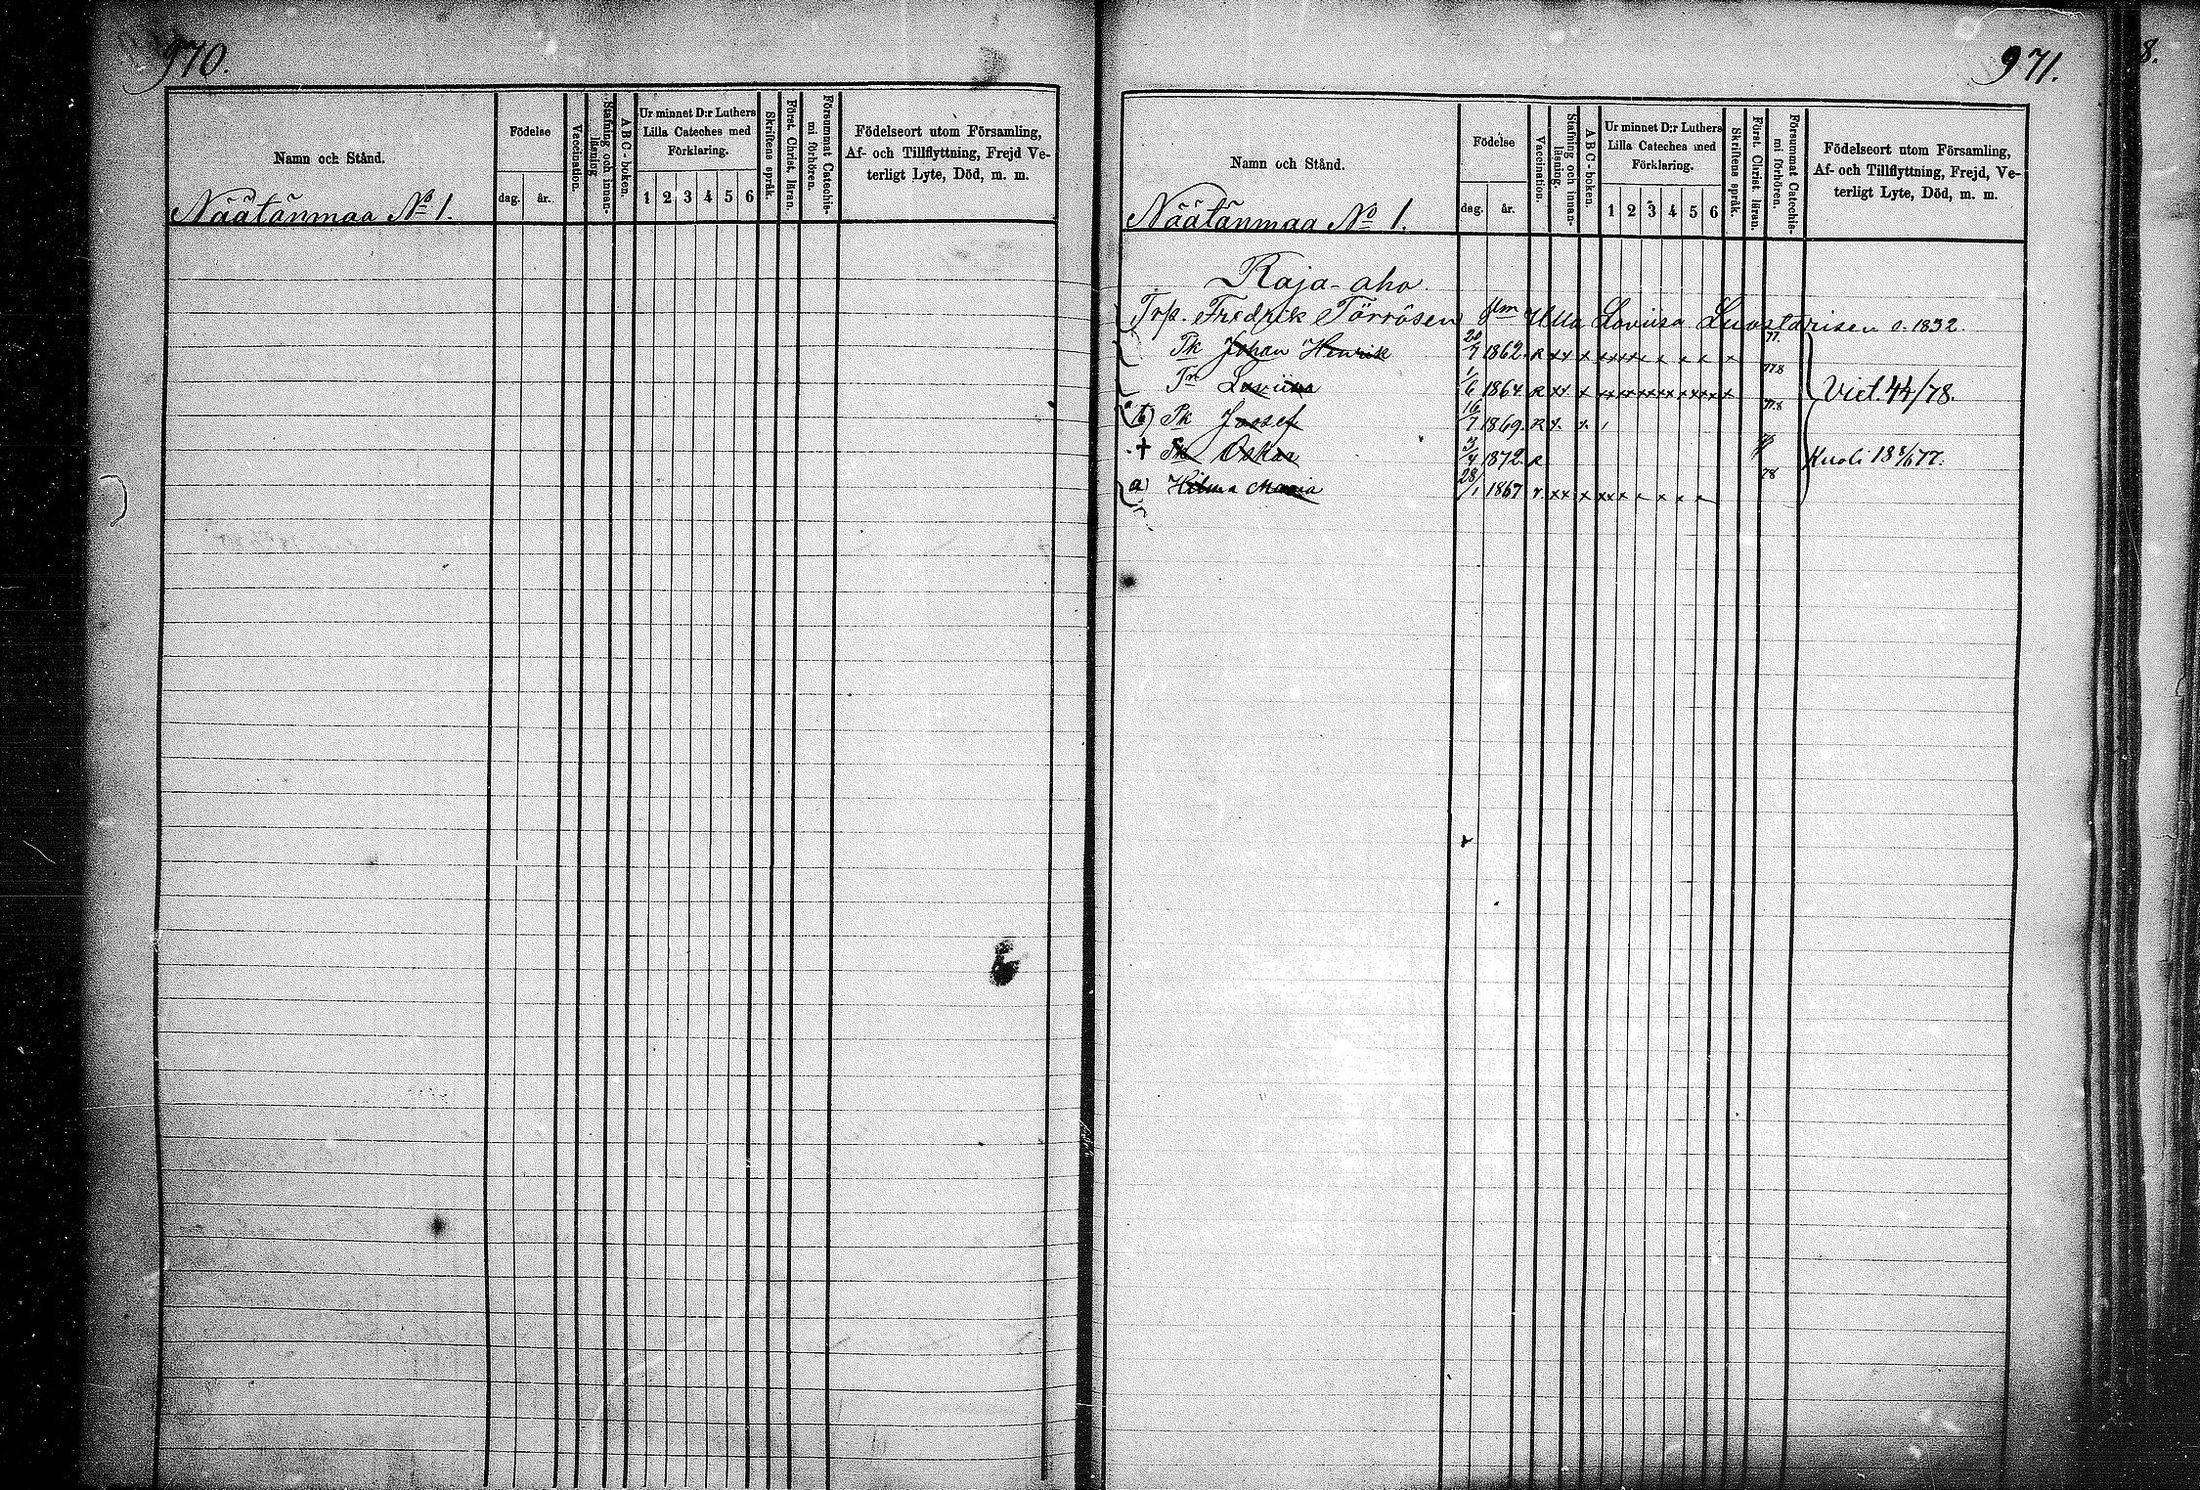 970.
Namn och Stånd.
Näätänmaa No 1.
Födelse
dag. år.
Vaccination.
Stafning och innan-
läsning
ABC-boken.
Ur minnet D:r Luthers
Lilla Cateches med
Förklaring.
1 2 3 4 5 6
Skriftens språk.
Först. Christ. läran.
Försummat Catechis-
mi förhören.
Födelseort utom Församling,
Af- och Tillflyttning, Frejd Ve-
terligt Lyte, Död, m. m.
971.
8.
Namn och Stånd.
Näätänmaa No 1.
Födelse
dag. år.
Vaccination.
Stafning och innan-
läsning.
ABC-boken.
Ur minnet D:r Luthers
Lilla Cateches med
Förklaring.
1 2 3 4 5 6
Skriftens språk.
Först. Christ. läran.
Försummat Catechis-
mi förhören.
Födelseort utom Församling,
Af- och Tillflyttning, Frejd, Ve-
terligt Lyte, Död, m. m.
Raja-aho
Trp. Fredrik Törrösen Ulla Loviisa Luostarisen s. 1832.
Pk Johan Henrik 20/9 1862. R xx x xxxxx x x x x 77.
Tr Loviisa 1/6 1864 R xx x xxxxxxxxxxxx x 778 Viet. 44/78.
b) Pk Josef 16/7 1869. R x. x. 778
+ Pk Oskar 3/4 1872. R Kuoli 18 77.
a) Hilma Maria 28/1 1867 r. xx x xxx x x x x 78